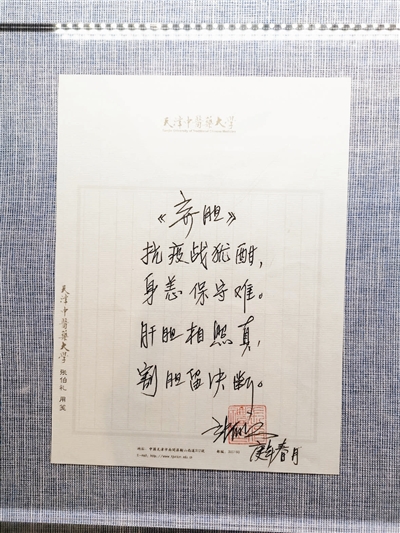 天津中医药大学
《弃胆》
抗疫战犹酣，
身恙保守难。
肝胆相照真，
割胆留决断。
张伯礼
庚子春月
天津中医药大学 张伯礼 用笺